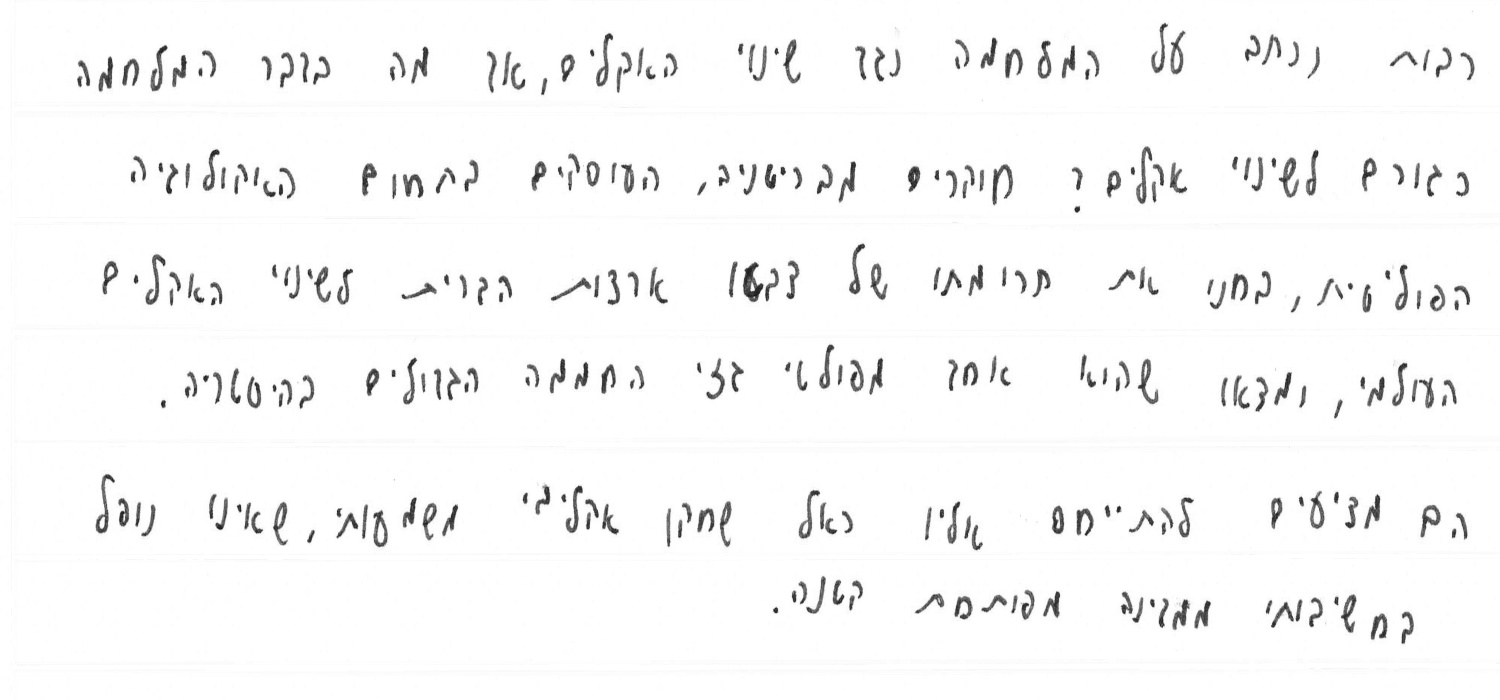 רבות נכתב על המלחמה נגד שינוי האקלים, אך מה בדבר המלחמה
כגורם לשינוי אקלים? חוקרים מבריטניה, העוסקים בתחום האקולוגיה
הפוליטית, בחנו את תרומתו של צבא ארצות הברית לשינוי האקלים
העולמי, ומצאו שהוא אחד מפולטי גזי החממה הגדולים בהיסטריה.
הם מציעים להתייחס אליו כאל שחקן אקלימי משמעותי, שאינו נופל
בחשיבותו ממדינה מפותחת קטנה.